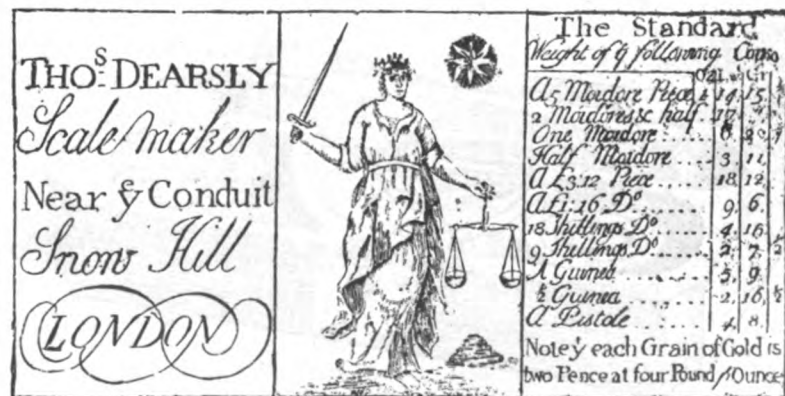 THOS DEARSLY
Scale maker
Near ye Conduit
Snow Hill
LONDON
The Standard
Weight of ye following Coins
Oz. w. Gr
A 5 Moidore Piece 1 14 15
2 Moidores & half 17
One Moidore 6 22
Half Moidore 3 11
A £3:12 Piece 18 12
A £1:16 Do 9 6
18 Shillings Do 4 15
9 Shillings Do 2 7 ½
A Guinea 5 9
½ Guinea 2 16 ½
A Pistole 4 8
Note ye each Grain of Gold is
two Pence at four Pound Ounce